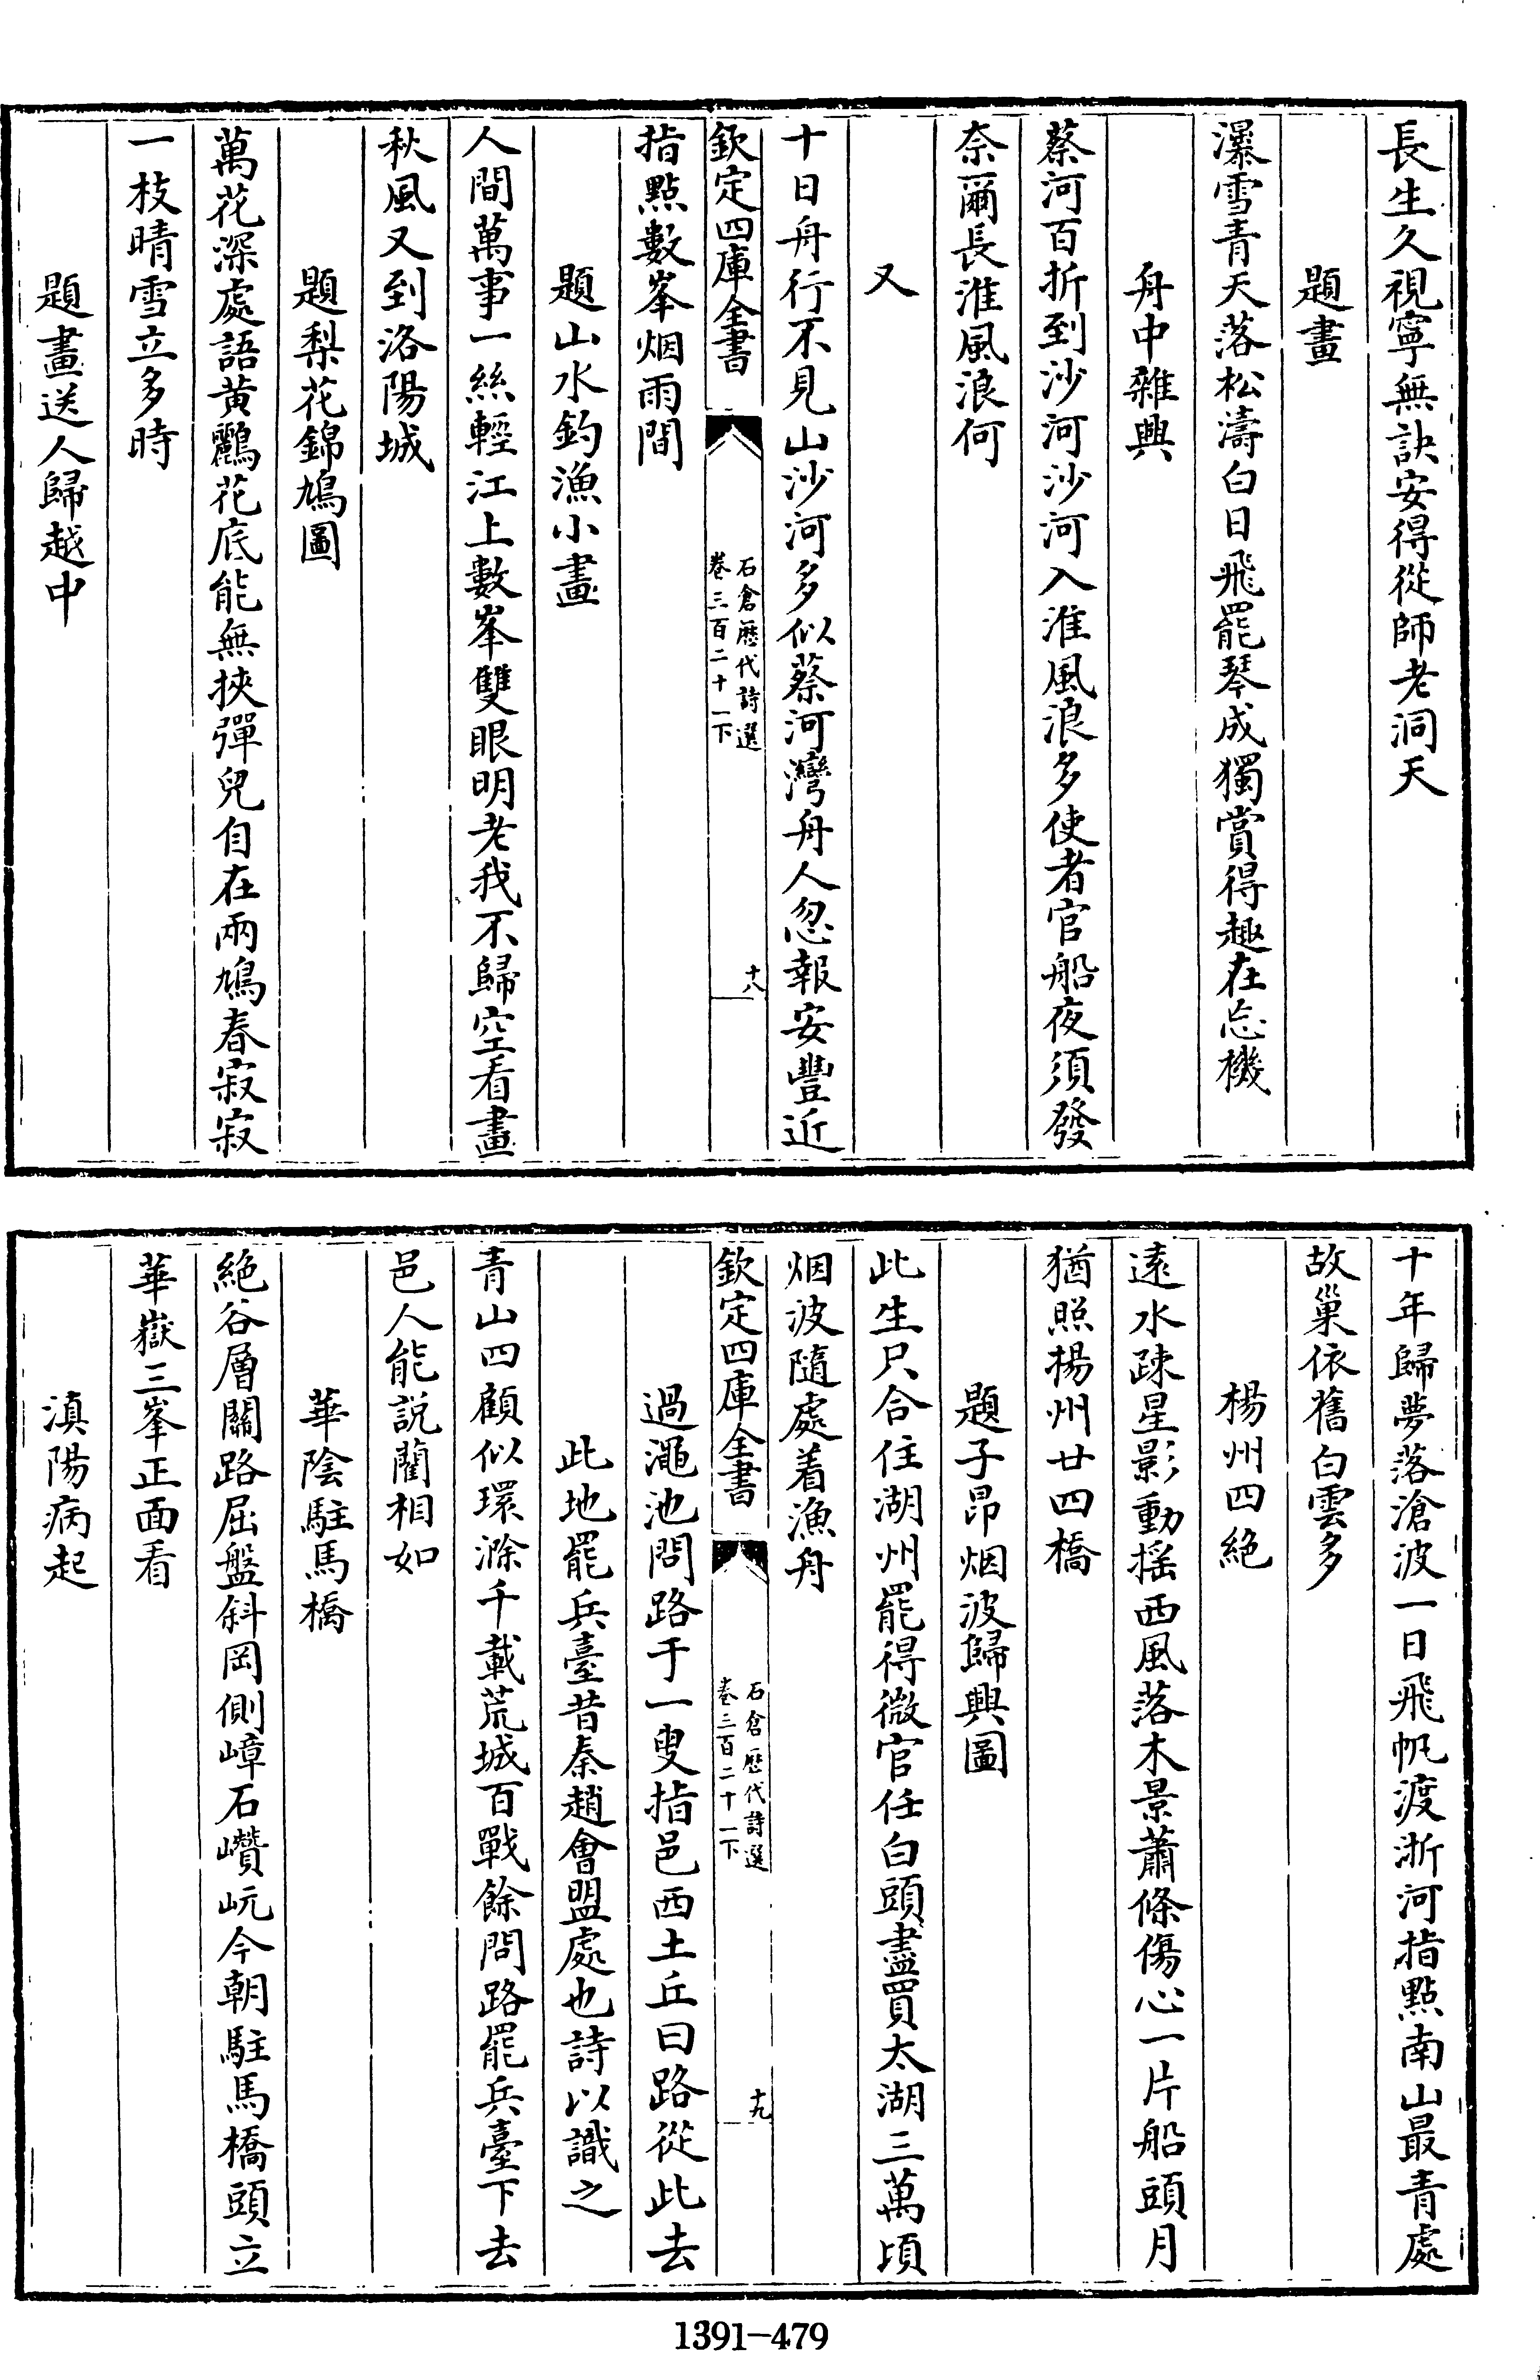 長生久視寧無訣安得從師老洞天
題畫
瀑雪青天落松濤白日飛罷琴成獨賞得趣在忘機
舟中雜興
蔡河百折到沙河沙河入淮風浪多使者官船夜須發
奈爾長淮風浪何
又
十日舟行不見山沙河多似蔡河灣舟人忽報安豐近
欽定四庫全書
石倉歷代詩選
卷三百二十一下
十八
指點數峯烟雨間
題山水釣漁小畫
人間萬事一絲輕江上數峯雙眼明老我不歸空看畫
秋風又到洛陽城
題梨花錦鳩圖
萬花深處語黃鸝花底能無挾彈兒自在兩鳩春寂寂
一枝晴雪立多時
題畫送人歸越中
十年歸夢落滄波一日飛帆渡浙河指點南山最青處
故巢依舊白雲多
楊州四絕
遠水疎星影動搖西風落木景蕭條傷心一片船頭月
猶照楊州廿四橋
題子昂烟波歸興圖
此生只合住湖州罷得微官任白頭盡買太湖三萬頃
烟波隨處着漁舟
欽定四庫全書
石倉歷代詩選
卷三百二十一下
十九
過澠池問路于一叟指邑西土丘曰路從此去
此地罷兵臺昔秦趙會盟處也詩以識之
青山四顧似環滁千載荒城百戰餘問路罷兵臺下去
邑人能說藺相如
華陰駐馬橋
絕谷層關路屈盤斜岡側嶂石巑岏今朝駐馬橋頭立
華嶽三峯正面看
滇陽病起
1391-479